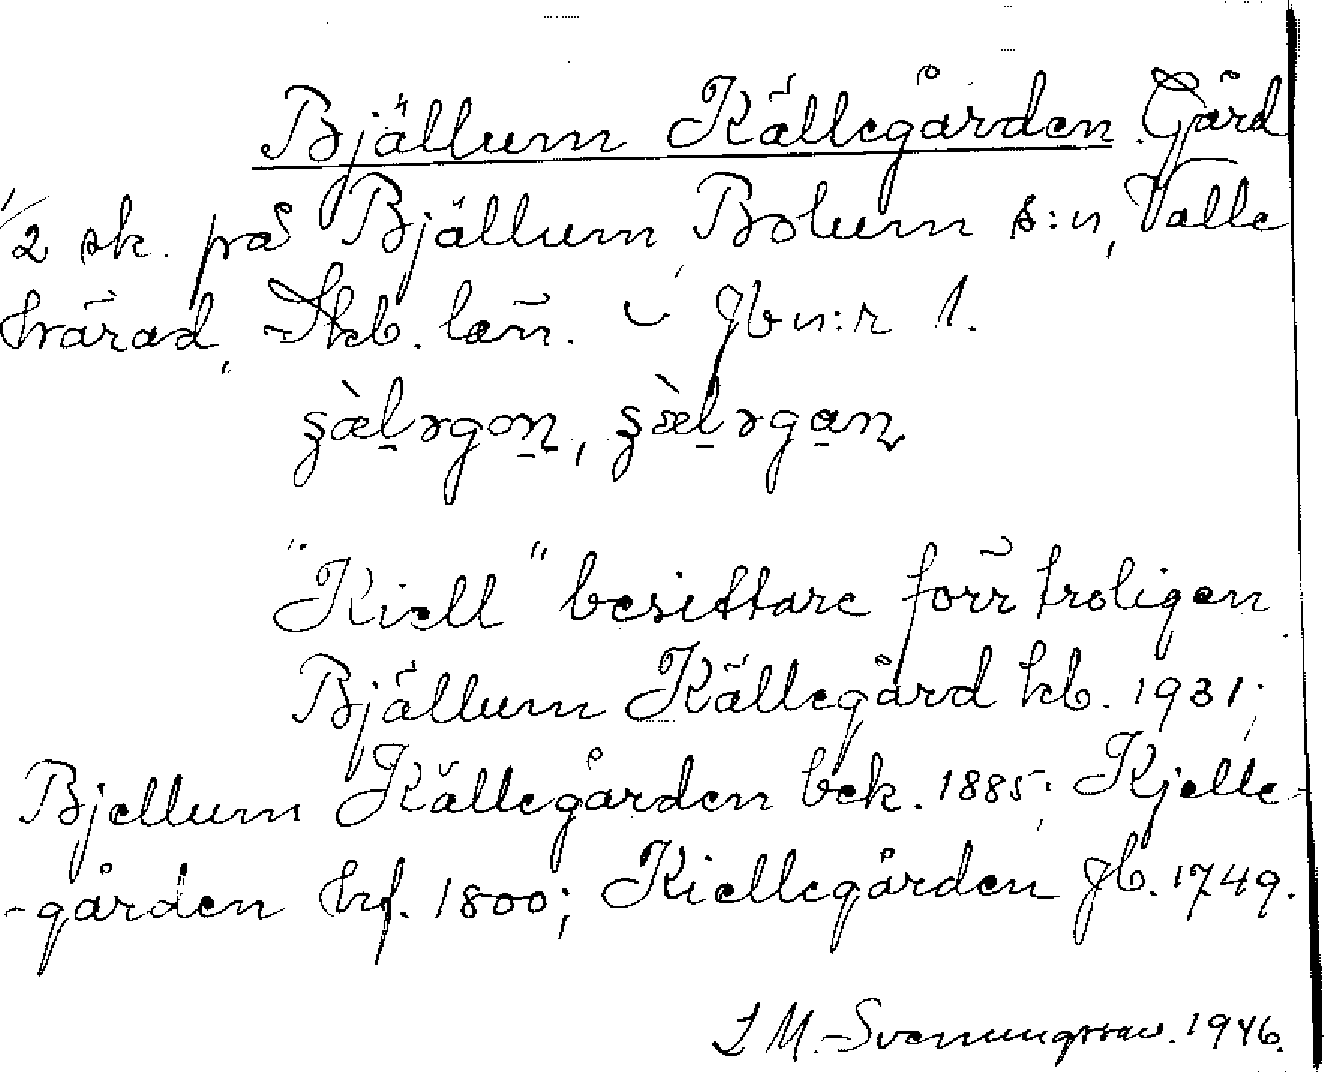 Bjällum Källegården Gård
1/2 sk. på Bjällum, Bolum s:n, Valle
härad, Skb. län. Jb n:r 1.
ʂæ̀l̠əgon̠, ʂæ̀l̠əga̠n
"Kiell" besittare förr troligen.
Bjällum Källegård kb. 1931;
Bjellum Källegården bek. 1885; Kjelle-
-gården hf. 1800; Kiellegården Jb. 1749.
M.-Svenungsson. 1946.